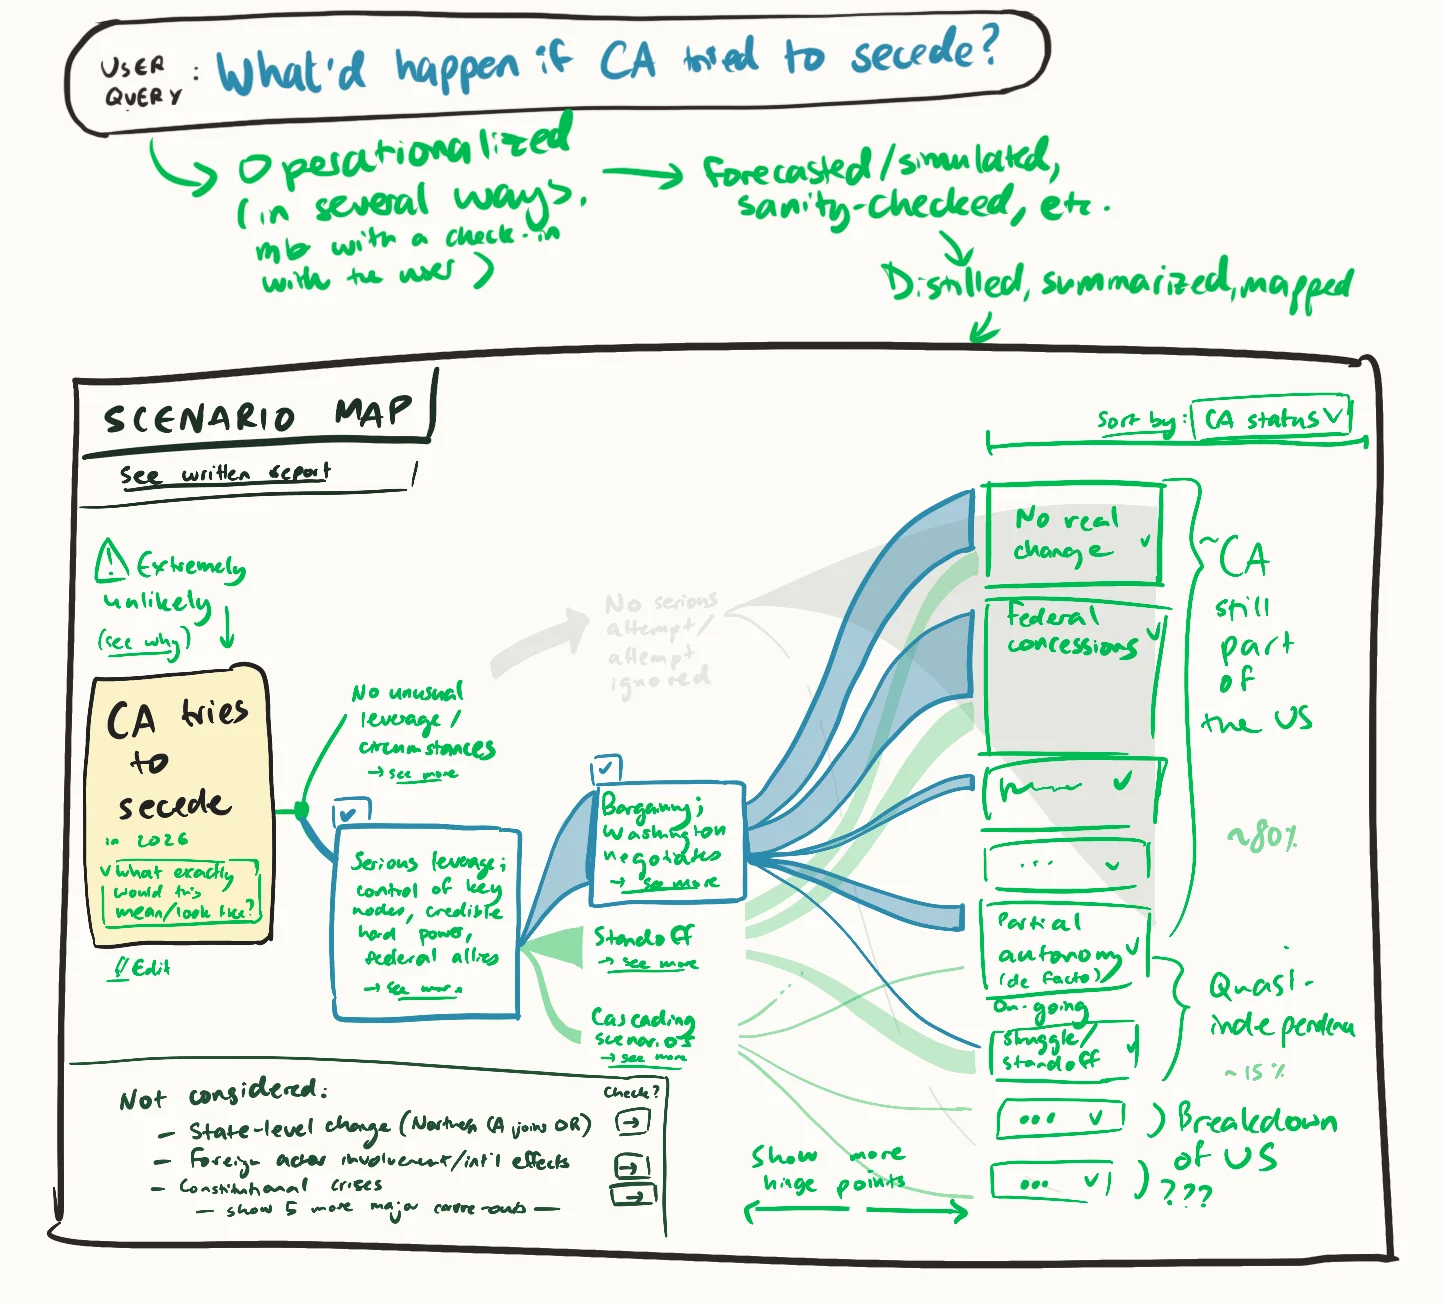 USER QUERY : What'd happen if CA tried to secede?
Operationalized
(in several ways,
mb with a check-in
with the user)
forecasted/simulated,
sanity-checked, etc.
Distilled, summarized, mapped
SCENARIO MAP
see written report
Sort by: CA status
! Extremely
unlikely
(see why)
CA tries
to
secede
in 2026
what exactly
would this
mean/look like?
Edit
No unusual
leverage/
circumstances
→ see more
Serious leverage;
control of key
nodes, credible
hard power,
federal allies
→ see more
No serious
attempt/
attempt
ignored
Bargaining;
Washington
negotiates
→ see more
Standoff
→ see more
Cascading
scenarios
→ see more
No real
change
Federal
concessions
...
Partial
autonomy
(de facto)
On-going
struggle/
standoff
...
...
~CA
still
part
of
the US
~80%
Quasi-
independence
~15%
Breakdown
of US
???
Show more
hinge points
Not considered:
Check?
– State-level change (Northern CA joins OR) →
– Foreign actor involvement/int'l effects →
– Constitutional crises →
– show 5 more major carve-outs —